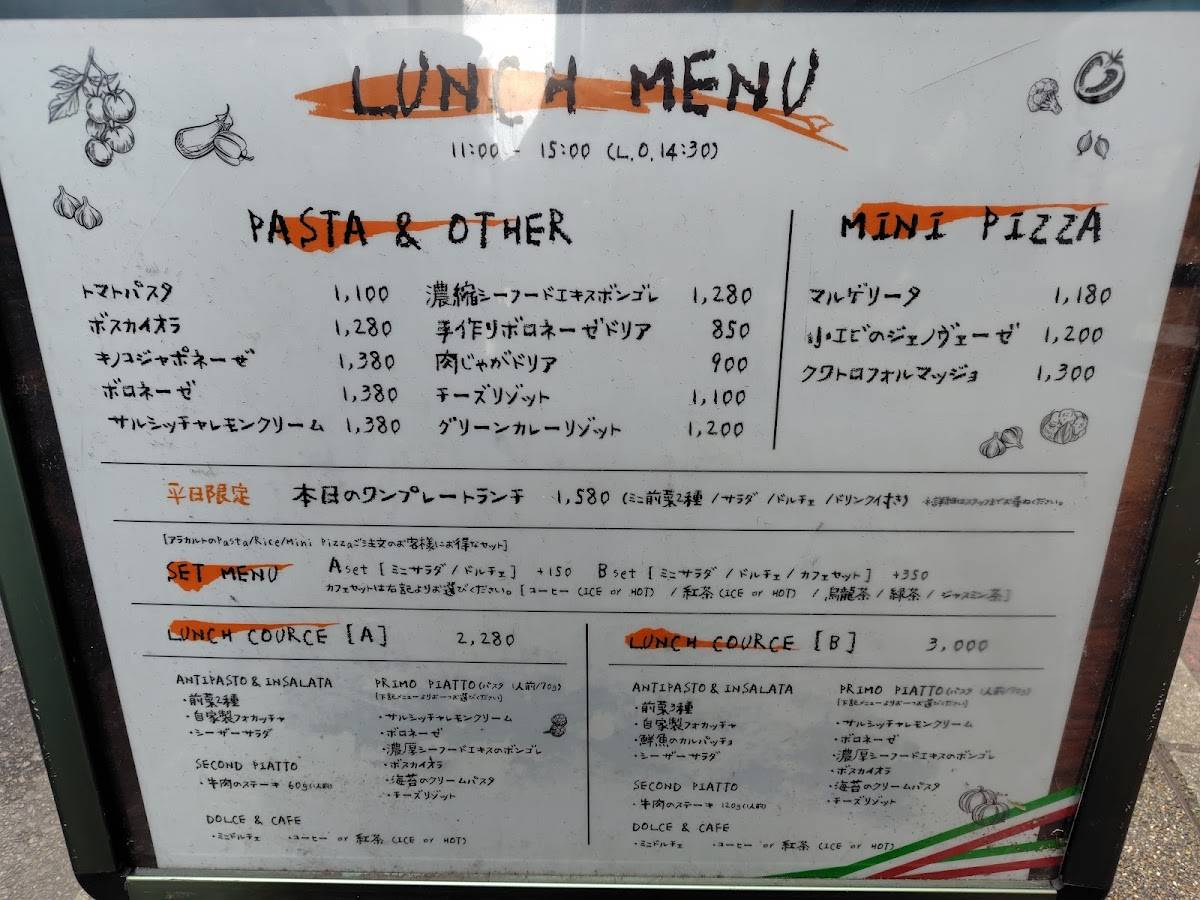 LUNCH MENU
11:00 - 15:00 (L.O.14:30)
PASTA & OTHER
トマトパスタ 1,100
ボスカイオラ 1,280
キノコジャポネーゼ 1,380
ボロネーゼ 1,380
サルシッチャレモンクリーム 1,380
濃縮シーフードエキスボンゴレ 1,280
手作りボロネーゼドリア 850
肉じゃがドリア 900
チーズリゾット 1,100
グリーンカレーリゾット 1,200
MINI PIZZA
マルゲリータ 1,180
小エビのジェノヴェーゼ 1,200
クワトロフォルマッジョ 1,300
平日限定 本日のワンプレートランチ 1,580 (ミニ前菜2種 / サラダ / ドルチェ / ドリンク付き) ※詳細はスタッフまでお尋ねください。
[アラカルトのPasta/Rice/Mini Pizzaご注文のお客様にお得なセット]
SET MENU Aset [ミニサラダ / ドルチェ] +150 Bset [ミニサラダ / ドルチェ / カフェセット] +350
カフェセットは右記よりお選びください。[コーヒー (ICE or HOT) / 紅茶 (ICE or HOT) / 烏龍茶 / 緑茶 / ジャスミン茶]
LUNCH COURCE [A] 2,280
ANTIPASTO & INSALATA
・前菜2種
・自家製フォカッチャ
・シーザーサラダ
SECOND PIATTO
・牛肉のステーキ 60g(1人前)
DOLCE & CAFE
・ミニドルチェ ・コーヒー or 紅茶 (ICE or HOT)
PRIMO PIATTO (パスタ 1人前/70g)
[下記メニューよりお一つお選びください]
・サルシッチャレモンクリーム
・ボロネーゼ
・濃厚シーフードエキスのボンゴレ
・ボスカイオラ
・海苔のクリームパスタ
・チーズリゾット
LUNCH COURCE [B] 3,000
ANTIPASTO & INSALATA
・前菜3種
・自家製フォカッチャ
・鮮魚のカルパッチョ
・シーザーサラダ
SECOND PIATTO
・牛肉のステーキ 120g(1人前)
DOLCE & CAFE
・ミニドルチェ ・コーヒー or 紅茶 (ICE or HOT)
PRIMO PIATTO (パスタ 1人前/70g)
[下記メニューよりお一つお選びください]
・サルシッチャレモンクリーム
・ボロネーゼ
・濃厚シーフードエキスのボンゴレ
・ボスカイオラ
・海苔のクリームパスタ
・チーズリゾット